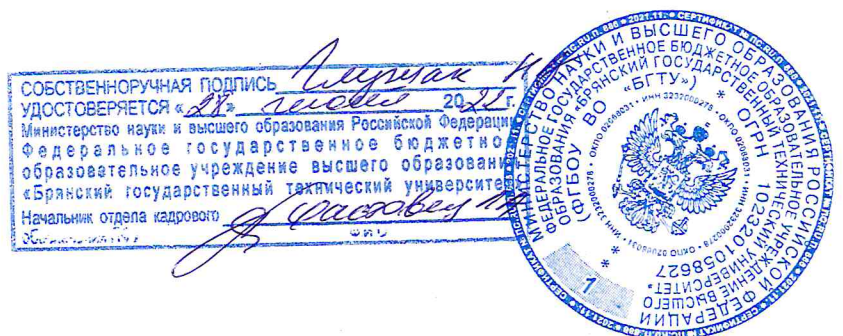 СОБСТВЕННОРУЧНАЯ ПОДПИСЬ
УДОСТОВЕРЯЕТСЯ «28» 2022 г.
Министерство науки и высшего образования Российской Федерации
Федеральное государственное бюджетно
образовательное учреждение высшего образовани
«Брянский государственный технический университе
Начальник отдела кадрового
ФИО
МИНИСТЕРСТВО НАУКИ И ВЫСШЕГО ОБРАЗОВАНИЯ РОССИЙСКОЙ ФЕДЕРАЦИИ
ФЕДЕРАЛЬНОЕ ГОСУДАРСТВЕННОЕ БЮДЖЕТНОЕ ОБРАЗОВАТЕЛЬНОЕ УЧРЕЖДЕНИЕ ВЫСШЕГО
ОБРАЗОВАНИЯ «БРЯНСКИЙ ГОСУДАРСТВЕННЫЙ ТЕХНИЧЕСКИЙ УНИВЕРСИТЕТ»
(ФГБОУ ВО «БГТУ») * ОГРН 1023201058627
* ИНН 3232000278 * ОКПО 02068031
СЕРТИФИКАТ № ПС.RU.П. 686 * 2021.11.
1